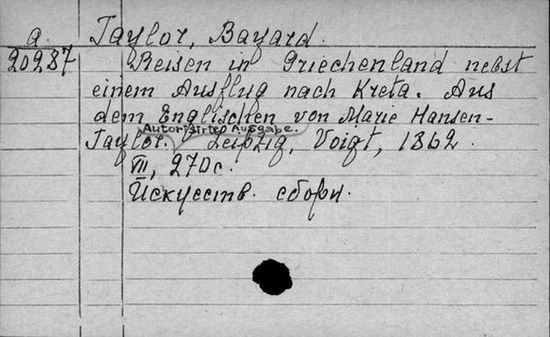 a. Taylor, Bayard.
20287 Reisen in Griechenland nebst
einem Ausflug nach Kreta. Aus
dem Englischen von Marie Hansen-
Autorisirte Ausgabe.
Taylor. Leipzig, Voigt, 1862
VIII, 270 с.
Искусств. сборн.